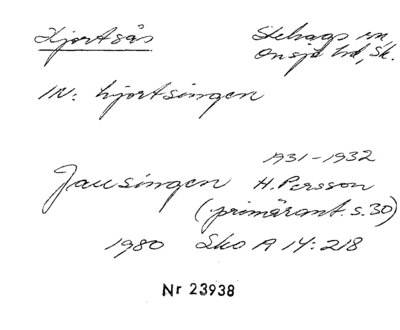 Hjortsås Stehags sn,
Onsjö hd, Sk.
IN: hjortsingen
1931-1932
Jausingen H. Persson
(primärant. s. 30)
1980 Sko A 14:218
Nr 23938